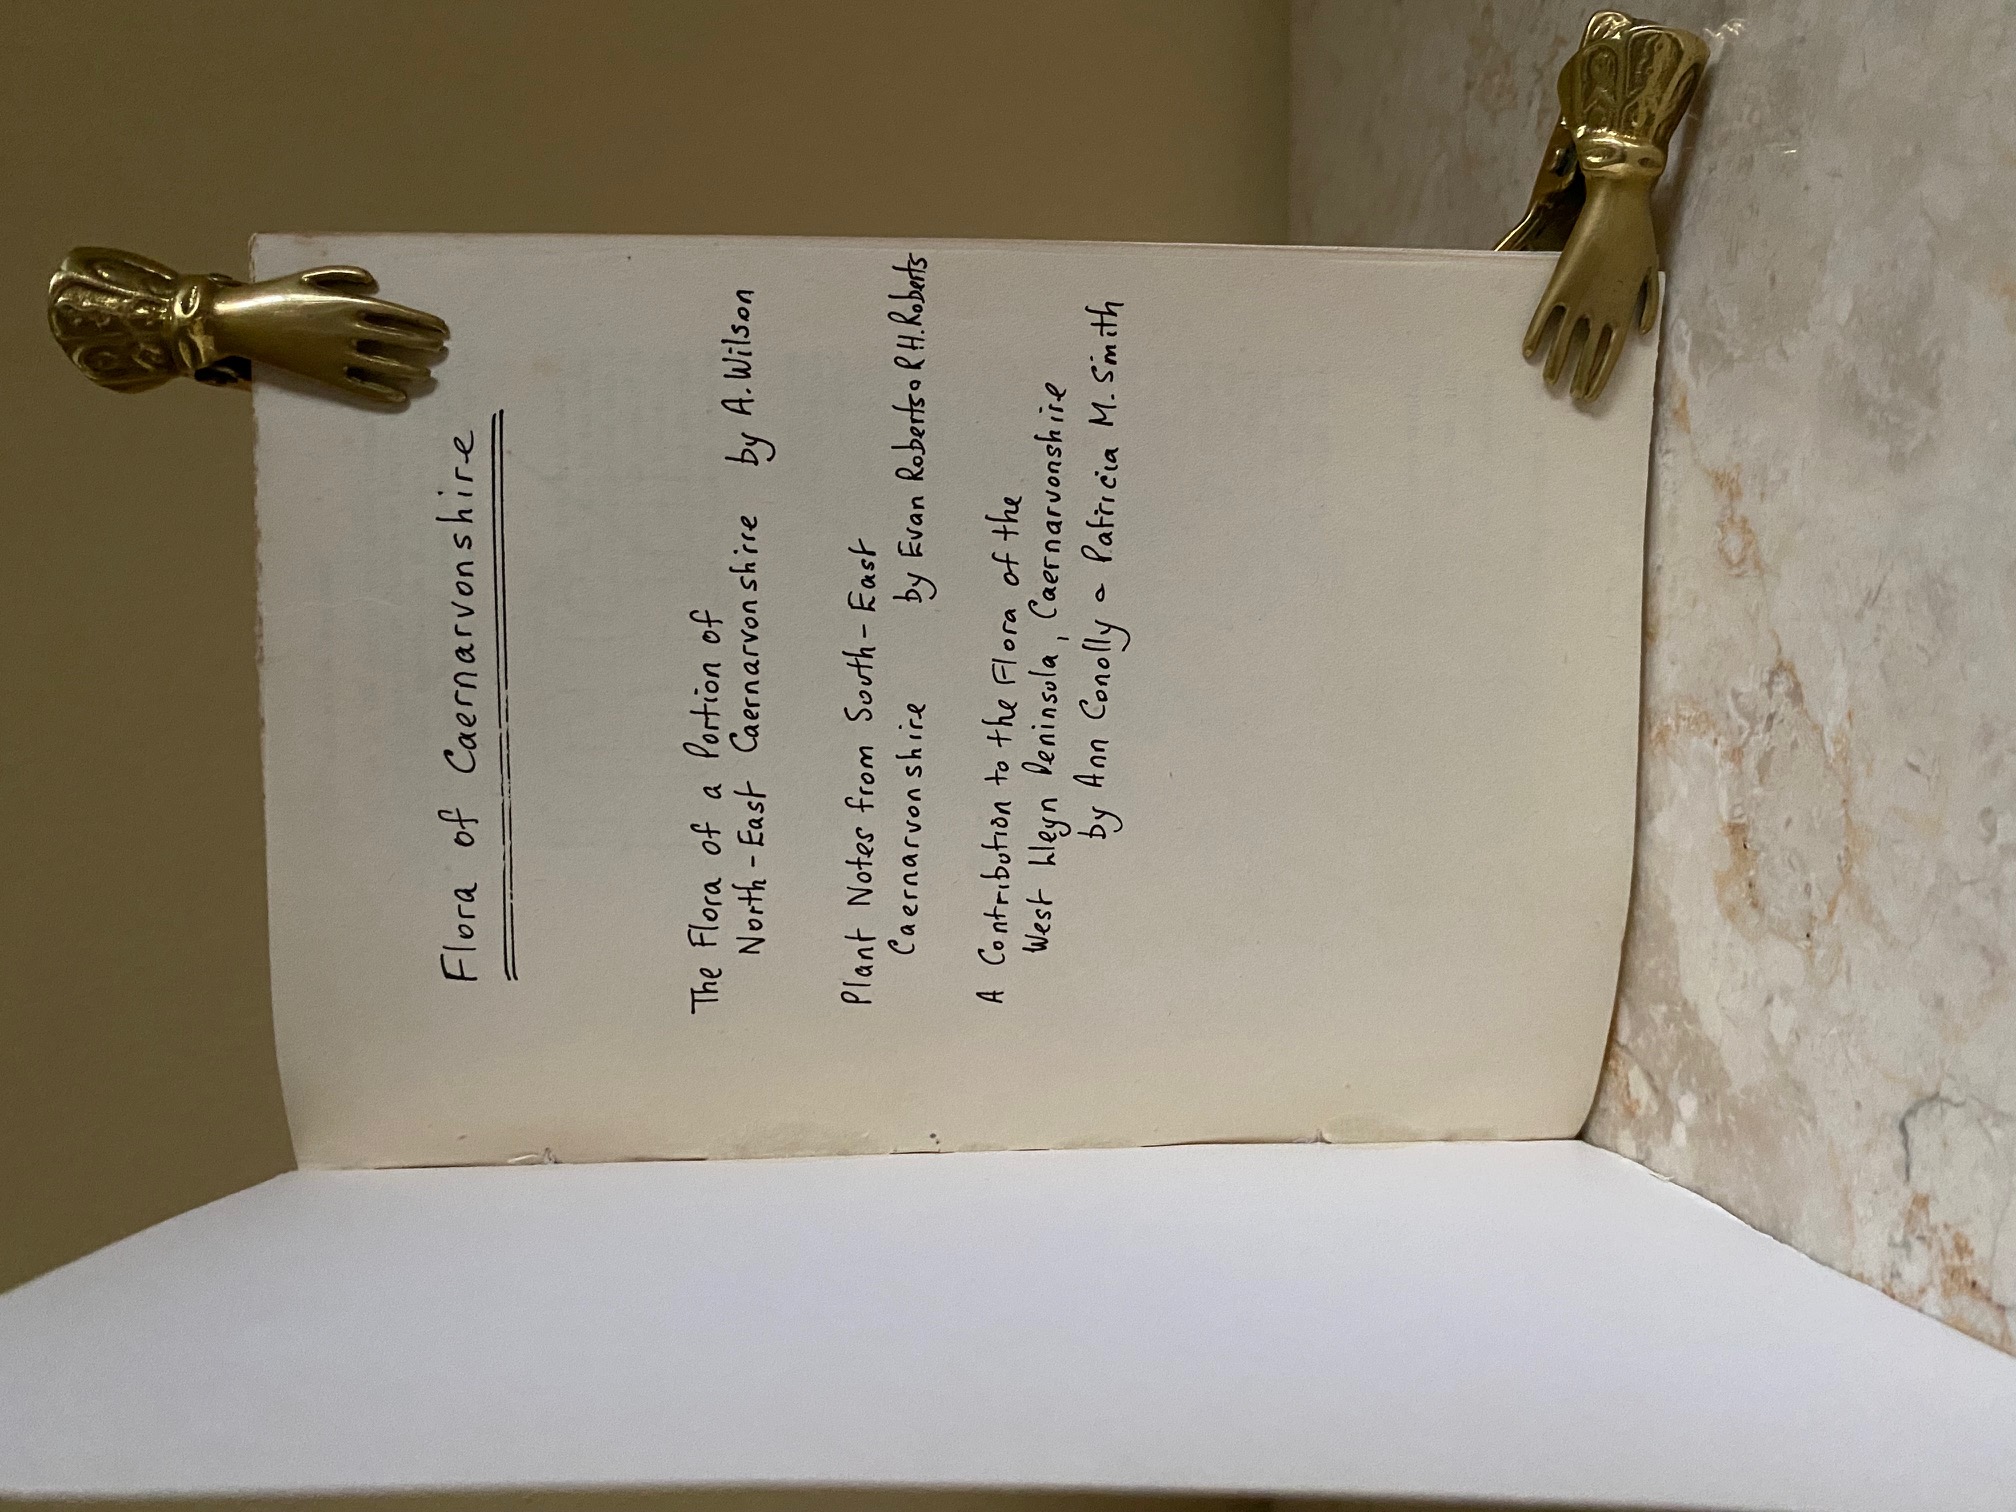 Flora of Caernarvonshire
The Flora of a Portion of
North-East Caernarvonshire by A. Wilson
Plant Notes from South-East
Caernarvonshire by Evan Roberts & R.H. Roberts
A Contribution to the Flora of the
West Lleyn Peninsula, Caernarvonshire
by Ann Conolly & Patricia M. Smith